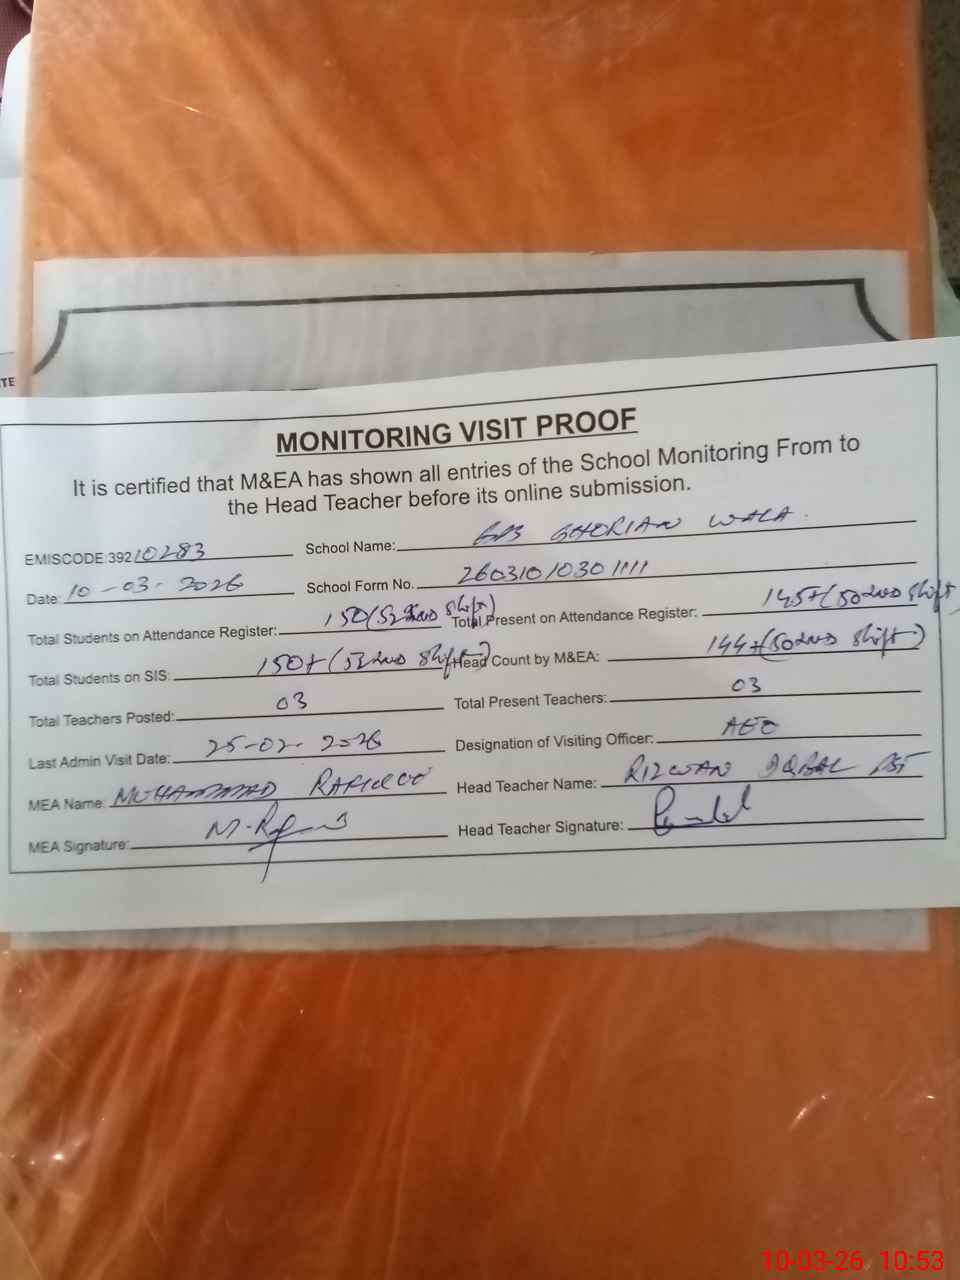 TE
MONITORING VISIT PROOF
It is certified that M&EA has shown all entries of the School Monitoring From to
the Head Teacher before its online submission.
EMISCODE:39210283 School Name: GPS GHORIAN WALA.
Date: 10-03-2026 School Form No. 26031010301111
Total Students on Attendance Register: 150 (53 2nd shift) Total Present on Attendance Register: 145+(50 2nd shift
Total Students on SIS: 150+ (53 2nd shift) Head Count by M&EA: 144+(50 2nd shift)
Total Teachers Posted: 03 Total Present Teachers: 03
Last Admin Visit Date: 25-02-2026 Designation of Visiting Officer: AEO
MEA Name: MUHAMMAD Head Teacher Name: RIZWAN IQBAL PST
MEA Signature: Head Teacher Signature:
10-03-26 10:53